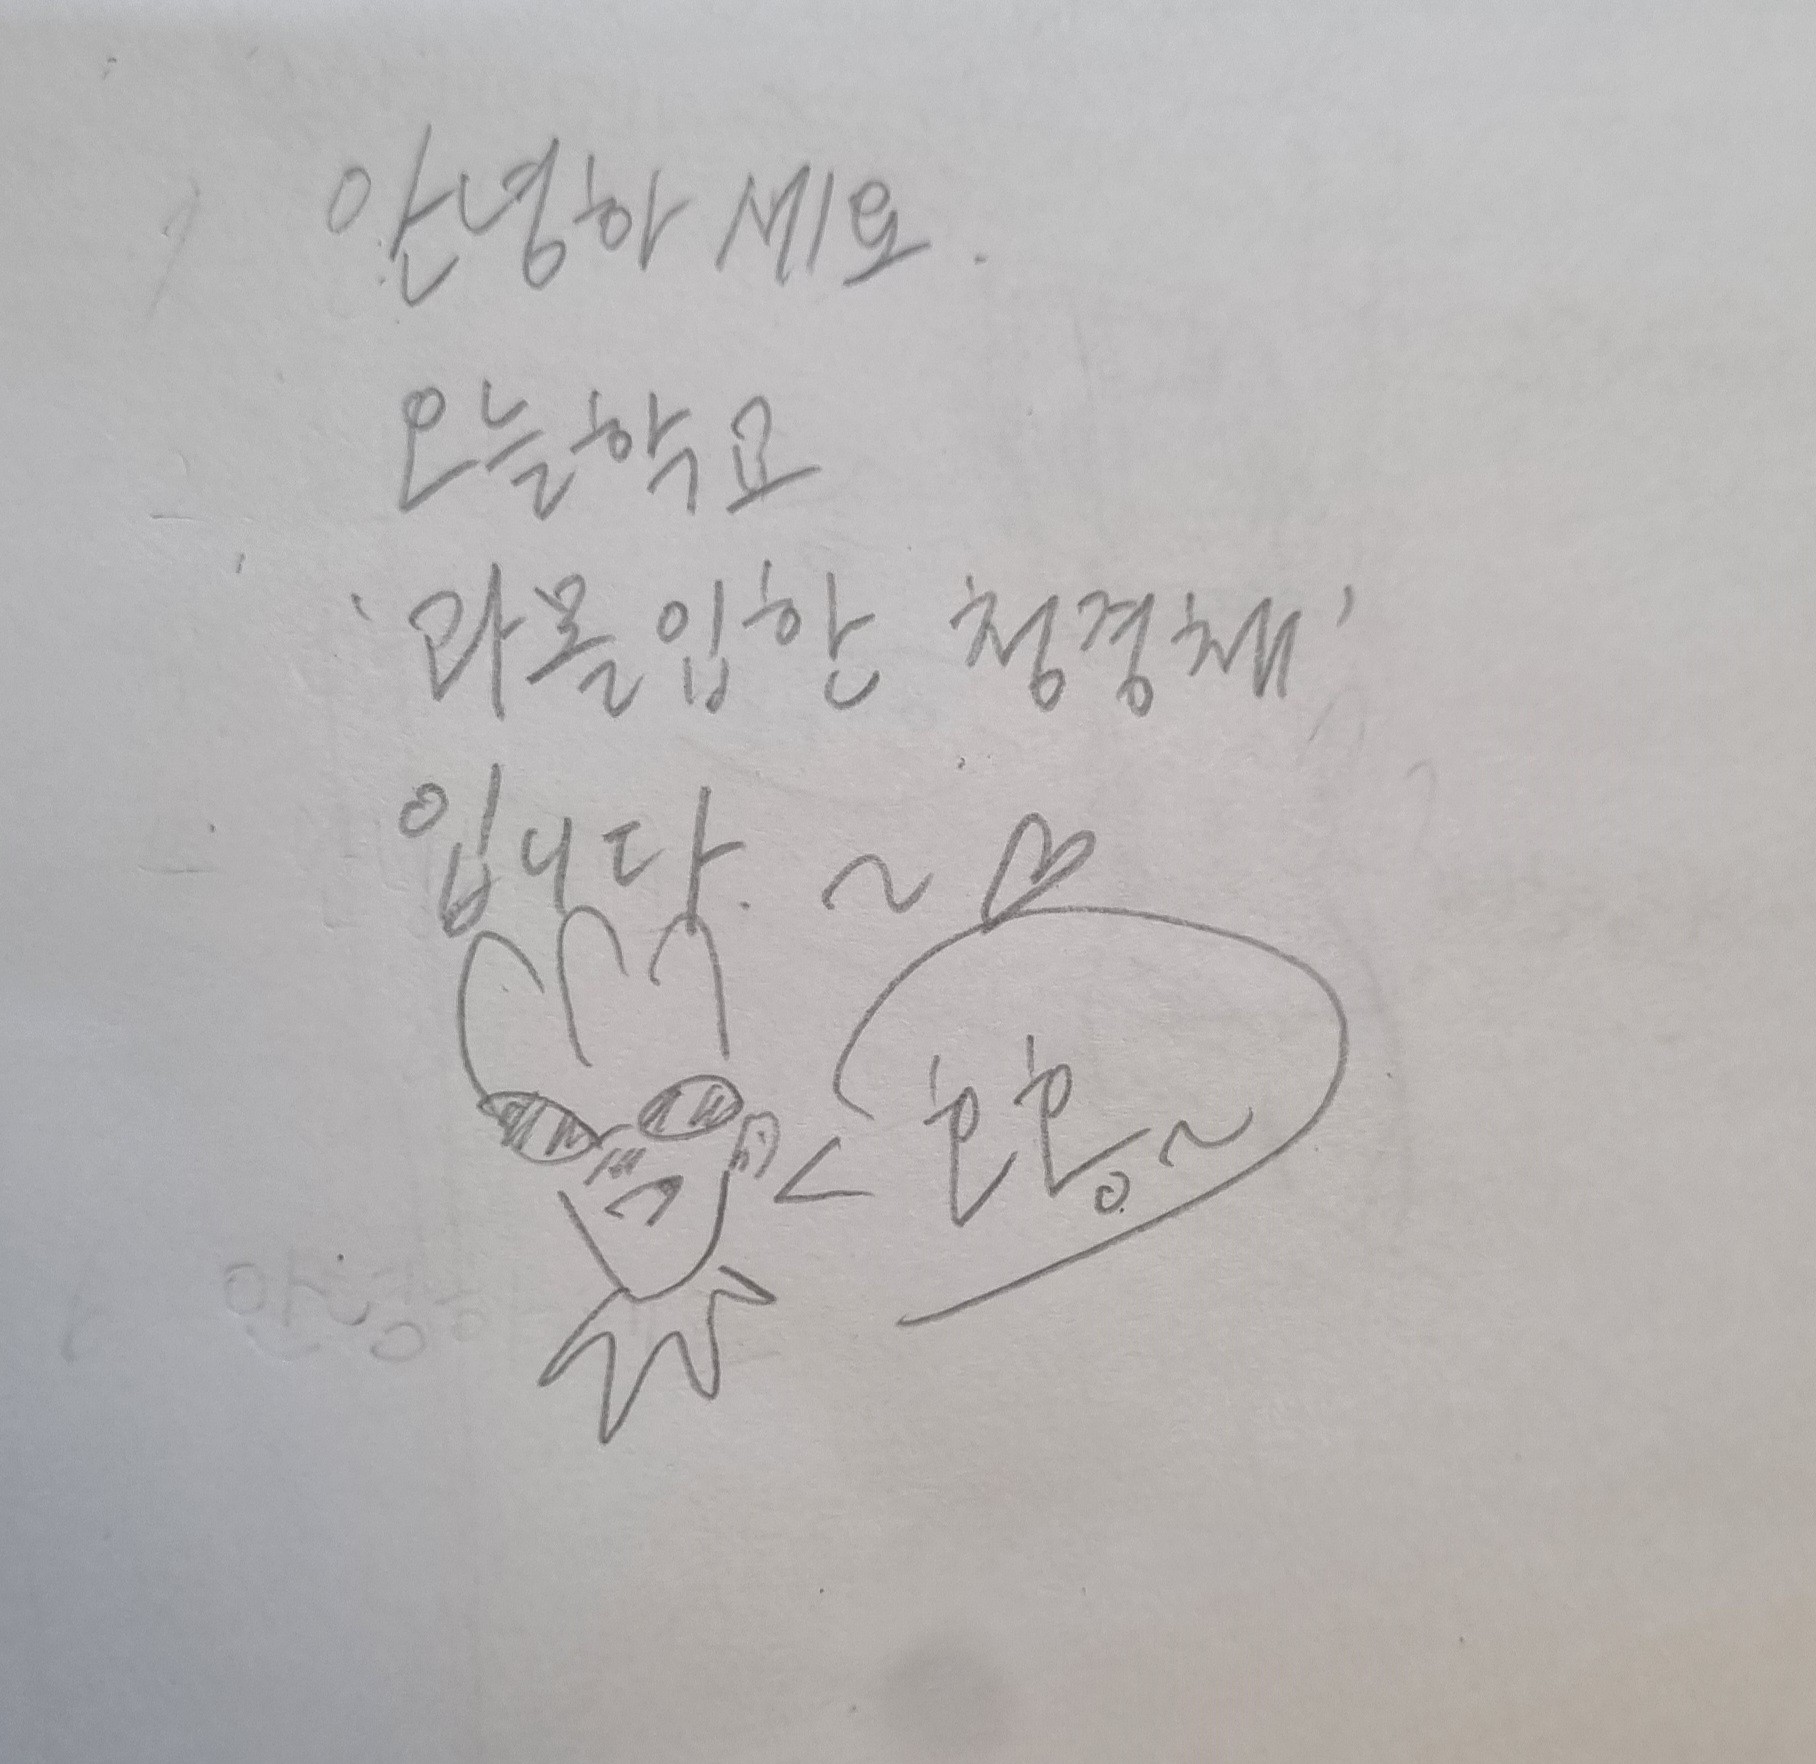 안녕하세요.
오늘학교
'과몰입한 청경채'
입니다. ~♡
흐흥~